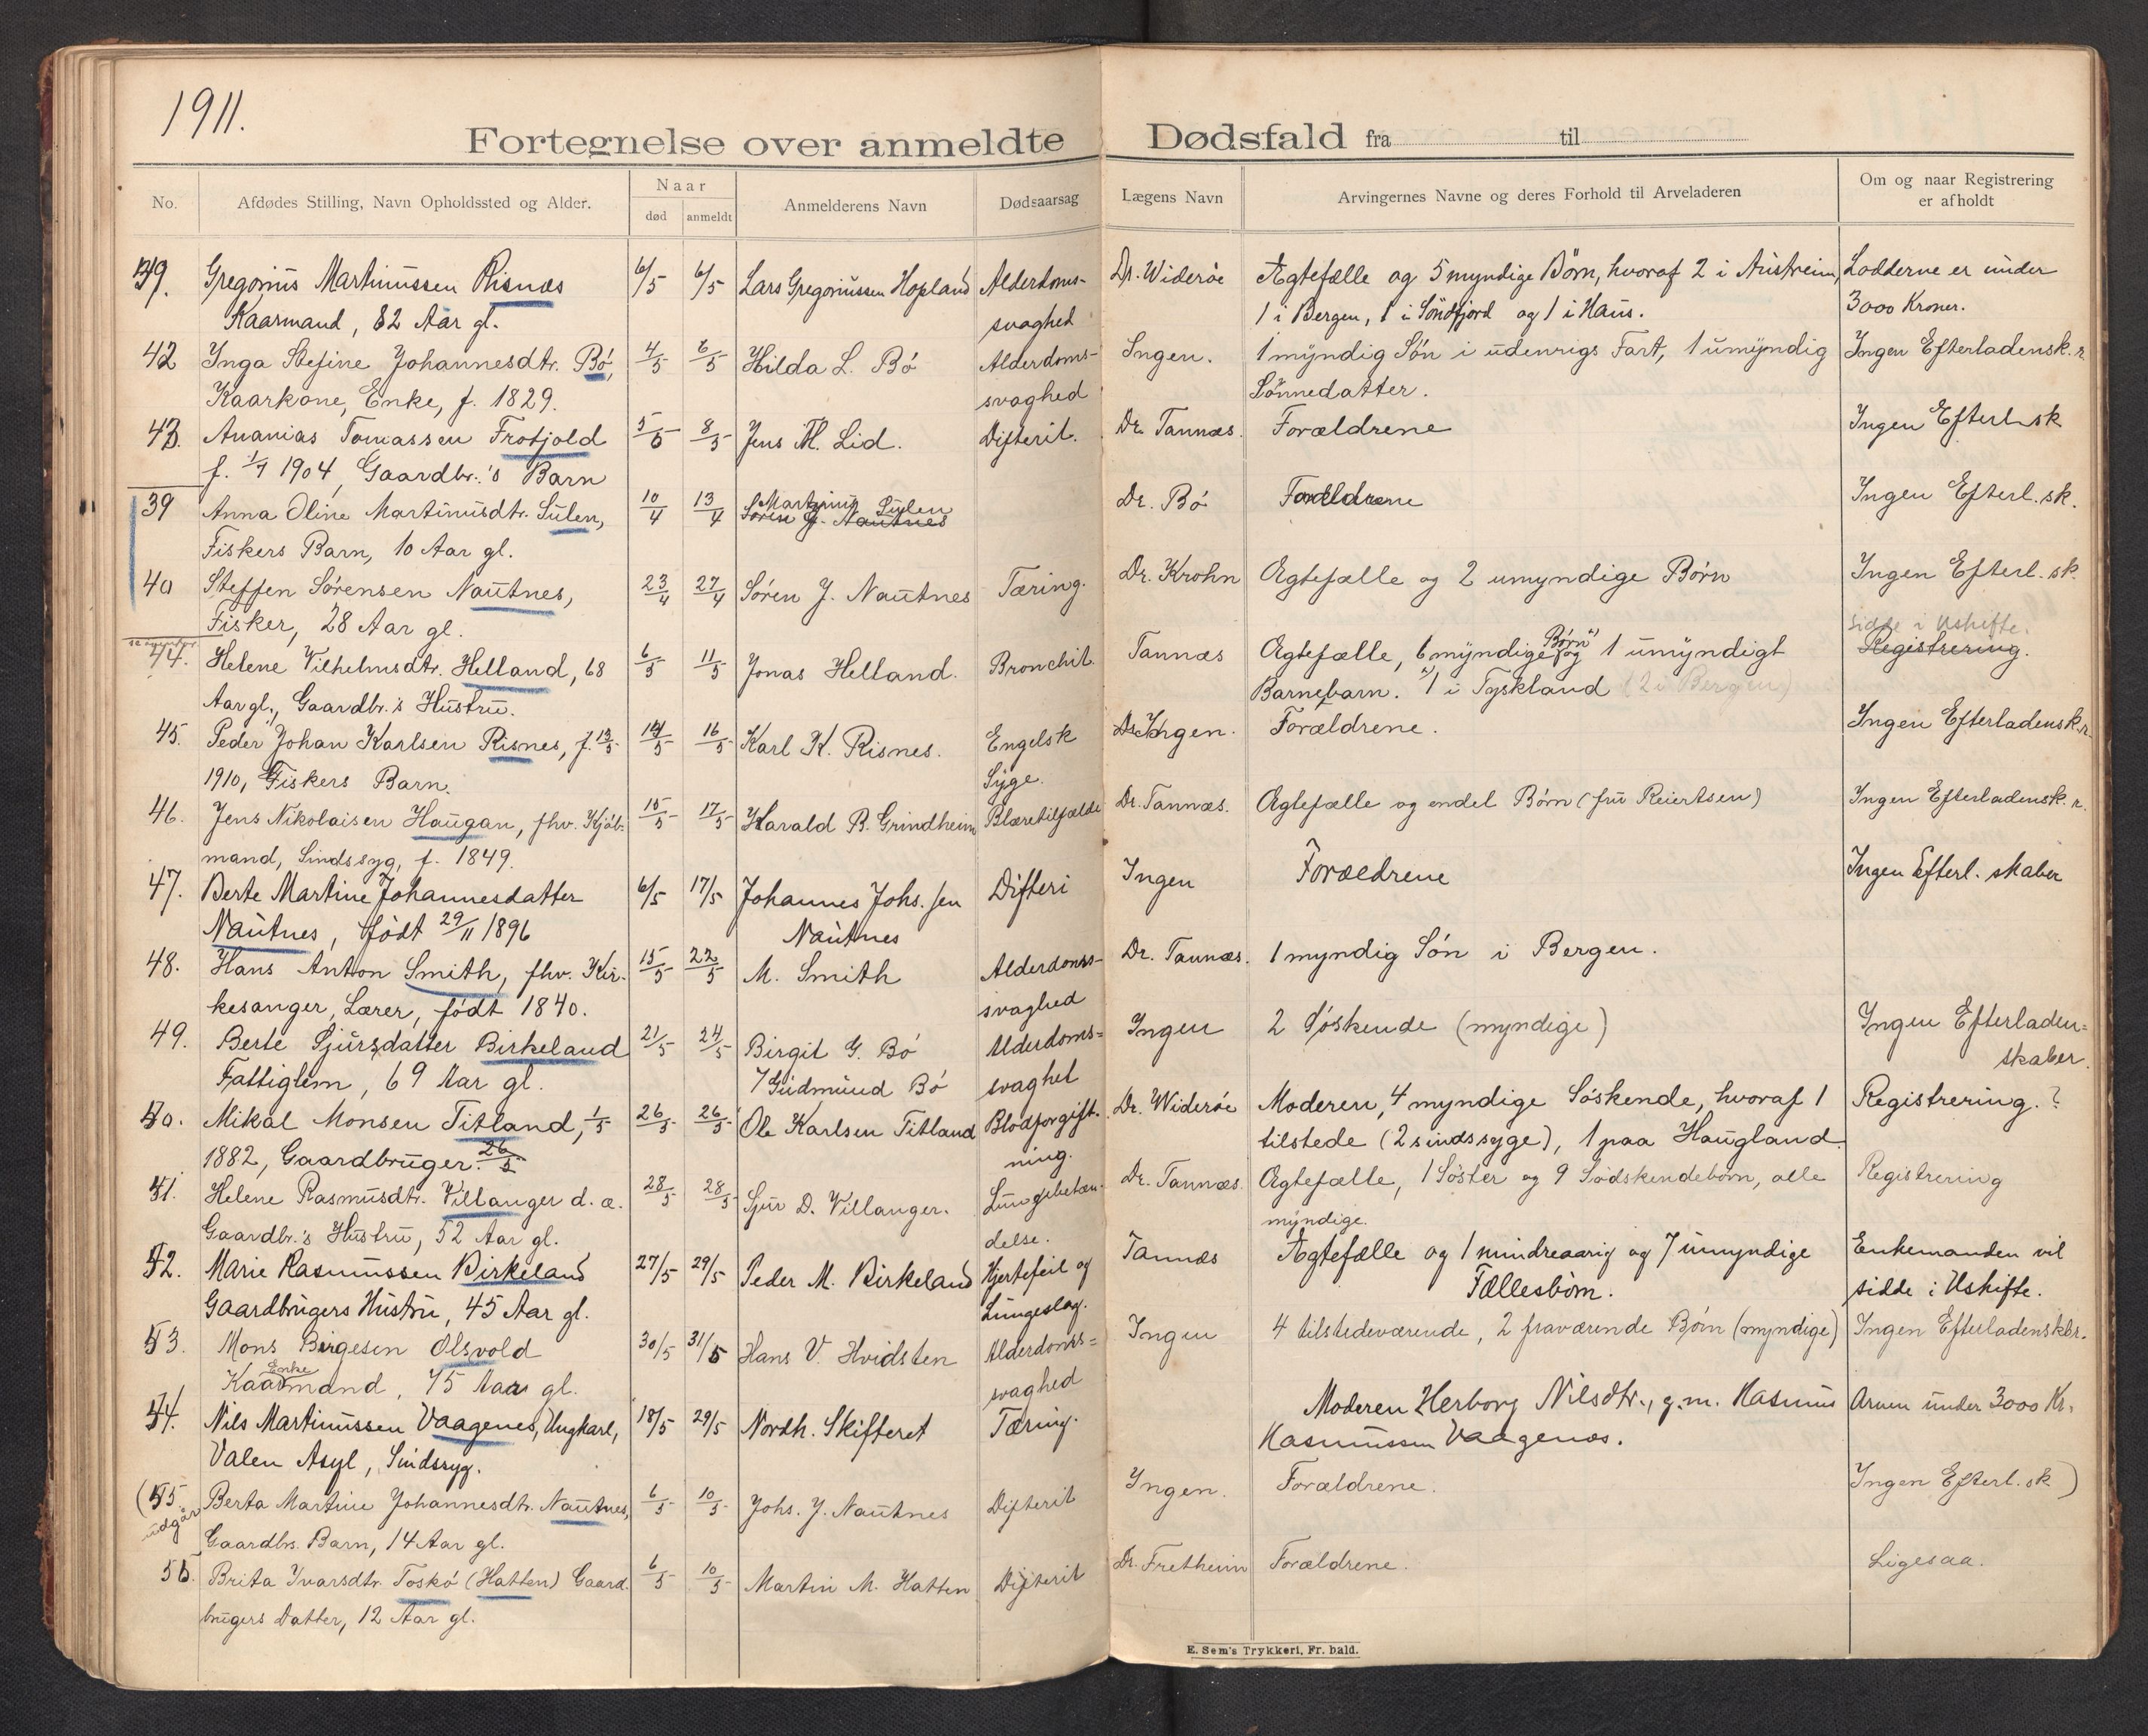 1911.
Fortegnelse over anmeldte Dødsfald fra til
No. Afdødes Stilling, Navn Opholdssted og Alder. Naar død anmeldt Anmelderens Navn Dødsaarsag Lægens Navn Arvingernes Navne og deres Forhold til Arveladeren Om og naar Registrering er afholdt
Gregorius Martinussen Risnæs 6/5 6/5 Lars Gregoriussen Hopland Alderdoms- Dr. Widerøe Ægtefælle og 5 myndige Börn, hvoraf 2 i Austreim, Lodderne er under
Kaarmand, 82 Aar gl. svaghed 1 i Bergen, 1 i Söndfjord og 1 i Haus. 3000 Kroner.
42 Inga Stefine Johannesdtr. Bø, 4/5 6/5 Hilda L. Bø Alderdoms- Ingen. 1 myndig Søn i udenrigs Fart, 1 umyndig Ingen Efterladensk.r
Kaarkone, Enke, f. 1829. svaghed Sønnedatter.
43. Ananias Tomassen Frotjold 5/5 8/5 Jens M. Lid. Difterit. Dr. Tannæs. Forældrene Ingen Efterl sk
f. 1/7 1904, Gaardbr.'s Barn
39 Anna Oline Martinusdtr. Sulen, 10/4 13/4 Martinus Sulen Søren J. Nautnes Dr. Bø Forældrene Ingen Efterl. sk.
Fiskers Barn, 10 Aar gl.
40 Steffen Sørensen Nautnes, 23/4 27/4 Søren J. Nautnes Tæring. Dr. Krohn Ægtefælle og 2 umyndige Børn Ingen Efterl. sk.
Fisker, 28 Aar gl. sidde i Uskifte.
44. Helene Vilhelmsdtr. Helland, 68 6/5 11/5 Jonas Helland. Bronchit. Tannæs Ægtefælle, 6 myndige Børn og 1 umyndigt Registrering.
Aar gl., Gaardbr.'s Hustru. Barnebarn. 1 i Tyskland (2 i Bergen)
45. Peder Johan Karlsen Risnes, f. 13/5 14/5 16/5 Karl K. Risnes. Engelsk Ingen. Forældrene. Ingen Efterladensk.r.
1910, Fiskers Barn. Syge.
46. Jens Nikolaisen Haugan, fhv. Kjøb- 15/5 17/5 Harald B. Grindheim Blæretilfælde Dr. Tannæs. Ægtefælle og endel Børn (fru Reiertsen) Ingen Efterladensk. r.
mand, Sindssyg, f. 1849.
47. Berte Martine Johannesdatter 6/5 17/5 Johannes Johs. sen Difteri Ingen Forældrene Ingen Efterl. skaber
Nautnes, født 29/11 1896 Nautnes
48. Hans Anton Smith, fhv. Kir- 15/5 22/5 M. Smith Alderdoms- Dr. Tannæs. 1 myndig Søn i Bergen.
kesanger, Lærer, født 1840. svaghed
49. Berte Sjursdatter Birkeland 21/5 24/5 Birgit G. Bø Alderdoms= Ingen 2 Søskende (myndige) Ingen Efterladen=
Fattiglem, 69 Aar gl. / Gudmund Bø svaghet skaber.
50. Mikal Monsen Titland, 1/5 26/5 26/5 Ole Karlsen Titland Blodforgift- Dr. Widerøe Moderen, 4 myndige Søskende, hvoraf 1 Registrering. ?
1882, Gaardbruger. 26/5 ning. tilstede (2 sindssyge), 1 paa Haugland.
51. Helene Rasmusdtr. Villanger d. æ. 28/5 28/5 Sjur D. Villanger. Lungebetæn- Dr. Tannæs. Ægtefælle, 1 Søster og 9 Sødskendebørn, alle Registrering
Gaardbr.'s Hustru, 52 Aar gl. delse. myndige.
52. Marie Rasmussen Birkeland 27/5 29/5 Peder M. Birkeland Hjertefeil og Tannæs Ægtefælle og 1 mindreaarig og 7 umyndige Enkemanden vil
Gaardbrugers Hustru, 45 Aar gl. Lungeslag. Fællesbørn. sidde i Uskifte.
53. Mons Birgesen Olsvold 30/5 31/5 Hans V. Hvidsten Alderdoms= Ingen 4 tilstedeværende, 2 fraværende Børn (myndige) Ingen Efterladenskbr.
Enke
Kaarmand, 75 Aar gl. svaghed
54. Nils Martinussen Vaagenes, Ungkarl, 18/5 29/5 Nordh. Skifteret Tæring. Moderen Herborg Nilsdtr., g.m. Rasmus Arven under 3000 Kr.
Valen Asyl, Sindssyg. Rasmussen Vaagenæs.
(55. udgår Berta Martine Johannesdtr. Nautnes, 6/5 10/5 Johs. J. Nautnes Difterit Ingen. Forældrene. Ingen Efterl. sk)
Gaardbrs. Barn, 14 Aar gl.
55. Brita Ivarsdtr. Toskø (Hatten) Gaard- 6/5 10/5 Martin M. Hatten Difterit Dr. Fretheim Forældrene. Ligesaa.
brugers Datter, 12 Aar gl.
E. Sem's Trykkeri, Fr. hald.